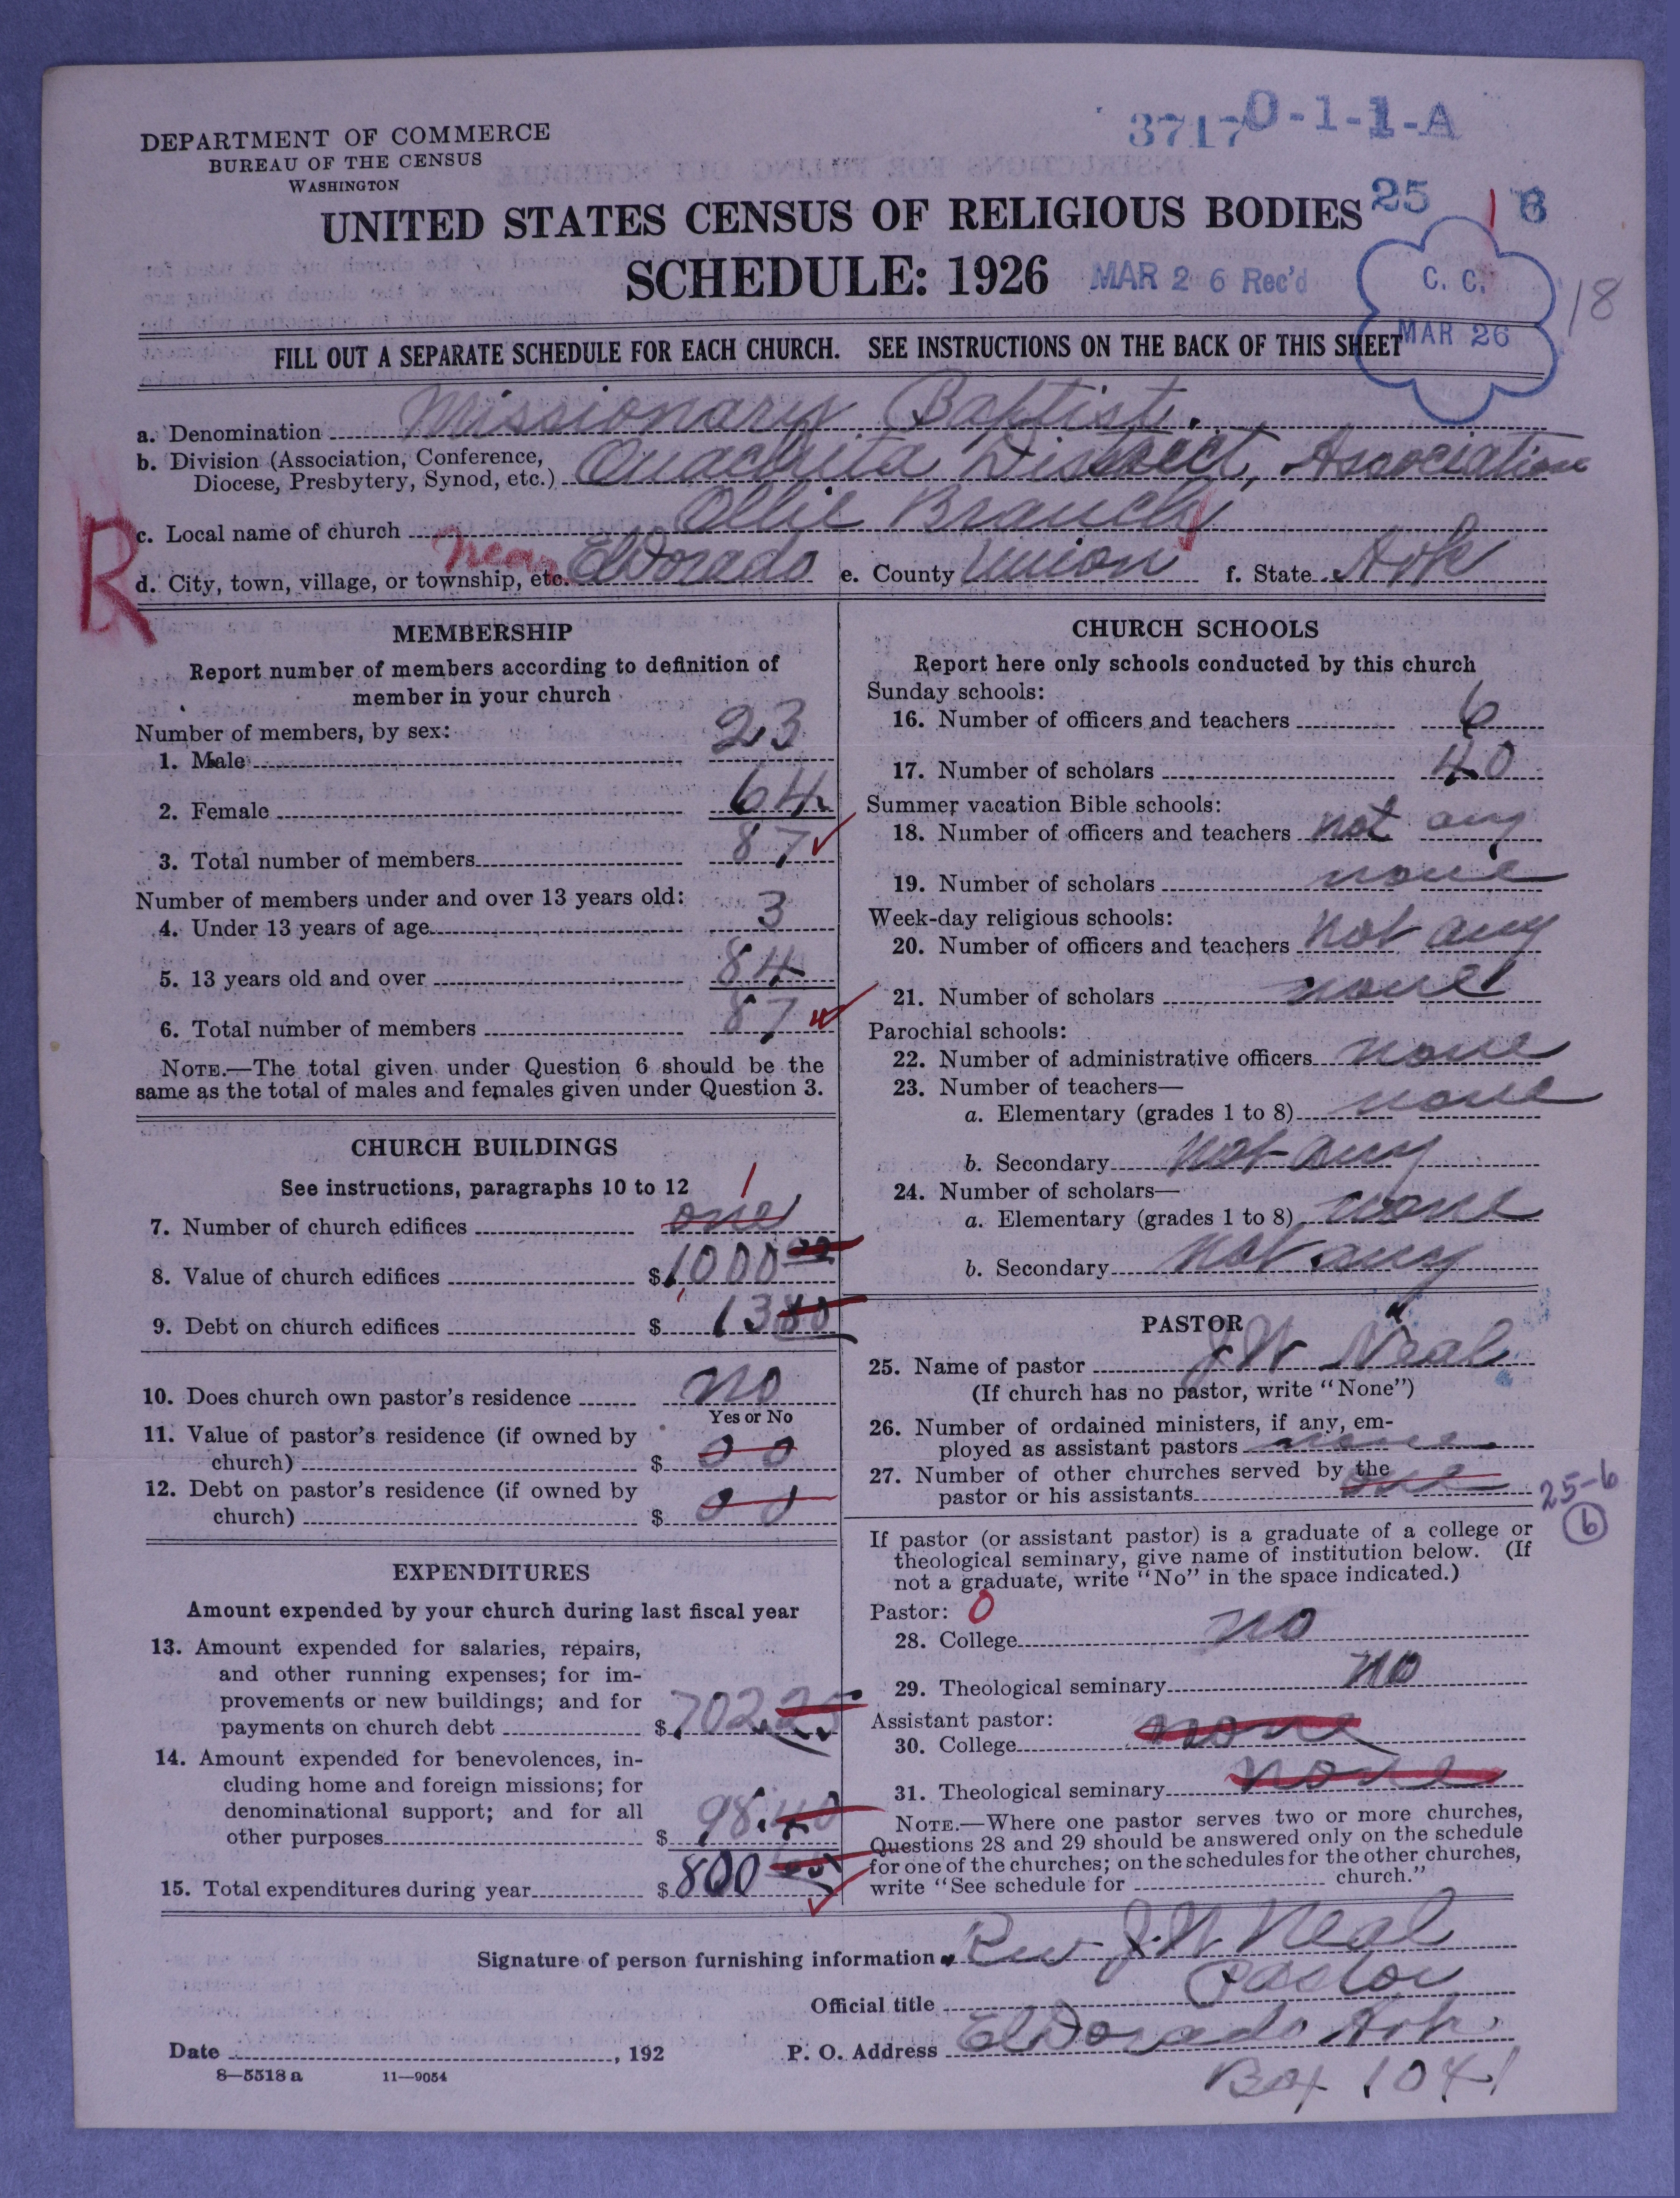 DEPARTMENT OF COMMERCE
BUREAU OF THE CENSUS
WASHINGTON
3717 0-1-1-A
UNITED STATES CENSUS OF RELIGIOUS BODIES
25 1 6
SCHEDULE: 1926
MAR 26 Rec'd
C. C.
MAR 26
18
FILL OUT A SEPARATE SCHEDULE FOR EACH CHURCH. SEE INSTRUCTIONS ON THE BACK OF THIS SHEET
a. Denomination Missionary Baptist.
b. Division (Association, Conference,
Diocese, Presbytery, Synod, etc.) Ouachita District, Association
R
c. Local name of church Ollie Branch
d. City, town, village, or township, etc. near ElDorado e. County Union f. State Ark
MEMBERSHIP
Report number of members according to definition of
member in your church
Number of members, by sex:
1. Male 23
2. Female 64
3. Total number of members 87
Number of members under and over 13 years old:
4. Under 13 years of age 3
5. 13 years old and over 84
6. Total number of members 87
NOTE.—The total given under Question 6 should be the
same as the total of males and females given under Question 3.
CHURCH BUILDINGS
See instructions, paragraphs 10 to 12
7. Number of church edifices one 1
8. Value of church edifices $1000 00
9. Debt on church edifices $ 13
10. Does church own pastor's residence no
Yes or No
11. Value of pastor's residence (if owned by
church) $ 00
12. Debt on pastor's residence (if owned by
church) $ 00
EXPENDITURES
Amount expended by your church during last fiscal year
13. Amount expended for salaries, repairs,
and other running expenses; for im-
provements or new buildings; and for
payments on church debt $702.25
14. Amount expended for benevolences, in-
cluding home and foreign missions; for
denominational support; and for all
other purposes $ 98.40
15. Total expenditures during year $800
CHURCH SCHOOLS
Report here only schools conducted by this church
Sunday schools:
16. Number of officers and teachers 6
17. Number of scholars 40
Summer vacation Bible schools:
18. Number of officers and teachers not any
19. Number of scholars none
Week-day religious schools:
20. Number of officers and teachers not any
21. Number of scholars none
Parochial schools:
22. Number of administrative officers none
23. Number of teachers—
a. Elementary (grades 1 to 8) none
b. Secondary not any
24. Number of scholars—
a. Elementary (grades 1 to 8) none
b. Secondary not any
PASTOR
25. Name of pastor J W Neal
(If church has no pastor, write "None")
26. Number of ordained ministers, if any, em-
ployed as assistant pastors none
27. Number of other churches served by the
pastor or his assistants one
25-6
6
If pastor (or assistant pastor) is a graduate of a college or
theological seminary, give name of institution below. (If
not a graduate, write "No" in the space indicated.)
Pastor: 0
28. College no
29. Theological seminary no
Assistant pastor:
30. College none
31. Theological seminary none
NOTE.—Where one pastor serves two or more churches,
Questions 28 and 29 should be answered only on the schedule
for one of the churches; on the schedules for the other churches,
write "See schedule for church."
Signature of person furnishing information Rev J. W. Neal
Official title Pastor
Date , 192
P. O. Address ElDorado Ark.
Box 1041
8—5518 a 11—9054